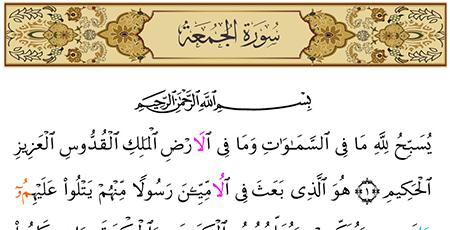 سُورَةُ الجُمُعَةِ
بِسْمِ اللَّهِ الرَّحْمَٰنِ الرَّحِيمِ
يُسَبِّحُ لِلَّهِ مَا فِى السَّمَـٰوَاتِ وَمَا فِى الَارْضِ الْمَلِكِ الْقُدُّوسِ الْعَزِيزِ
الْحَكِيمِ ۝١ هُوَ الَّذِى بَعَثَ فِى الُامِّيِّـۧنَ رَسُولًا مِنْهُمْ يَتْلُوا۟ عَلَيْهِمُۥٓ